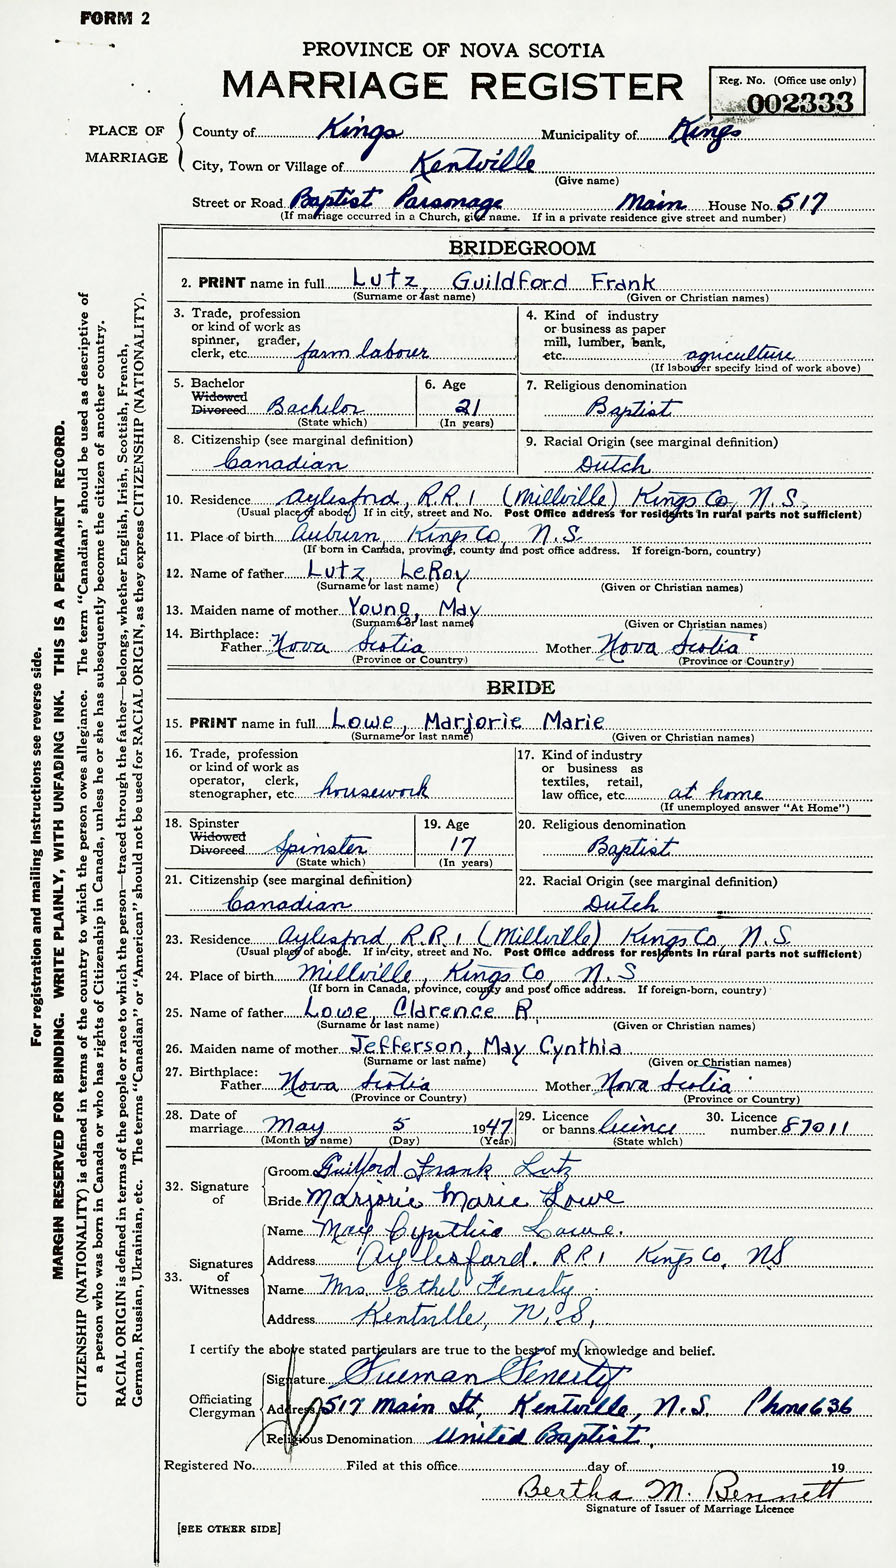 FORM 2
PROVINCE OF NOVA SCOTIA
MARRIAGE REGISTER
Reg. No. (Office use only)
002333
PLACE OF MARRIAGE
County of Kings Municipality of Kings
City, Town or Village of Kentville
(Give name)
Street or Road Baptist Parsonage Main House No. 517
(If marriage occurred in a Church, give name. If in a private residence give street and number)
BRIDEGROOM
2. PRINT name in full Lutz, Guildford Frank
(Surname or last name) (Given or Christian names)
3. Trade, profession
or kind of work as
spinner, grader,
clerk, etc. farm labour
4. Kind of industry
or business as paper
mill, lumber, bank,
etc. agriculture
(If labourer specify kind of work above)
5. Bachelor
Widowed
Divorced Bachelor
(State which)
6. Age
21
(In years)
7. Religious denomination
Baptist
8. Citizenship (see marginal definition)
Canadian
9. Racial Origin (see marginal definition)
Dutch
10. Residence Aylesford, R.R. 1 (Millville) Kings Co, N.S.
(Usual place of abode) If in city, street and No. Post Office address for residents in rural parts not sufficient)
11. Place of birth Auburn, Kings Co, N.S.
(If born in Canada, province, county and post office address. If foreign-born, country)
12. Name of father Lutz, LeRoy
(Surname or last name) (Given or Christian names)
13. Maiden name of mother Young, May
(Surname or last name) (Given or Christian names)
14. Birthplace:
Father Nova Scotia Mother Nova Scotia
(Province or Country) (Province or Country)
BRIDE
15. PRINT name in full Lowe, Marjorie Marie
(Surname or last name) (Given or Christian names)
16. Trade, profession
or kind of work as
operator, clerk,
stenographer, etc. housework
17. Kind of industry
or business as
textiles, retail,
law office, etc. at home
(If unemployed answer "At Home")
18. Spinster
Widowed
Divorced Spinster
(State which)
19. Age
17
(In years)
20. Religious denomination
Baptist
21. Citizenship (see marginal definition)
Canadian
22. Racial Origin (see marginal definition)
Dutch
23. Residence Aylesford, R.R. 1 (Millville) Kings Co, N.S
(Usual place of abode. If in city, street and No. Post Office address for residents in rural parts not sufficient)
24. Place of birth Millville, Kings Co, N.S
(If born in Canada, province, county and post office address. If foreign-born, country)
25. Name of father Lowe, Clarence R.
(Surname or last name) (Given or Christian names)
26. Maiden name of mother Jefferson, May Cynthia
(Surname or last name) (Given or Christian names)
27. Birthplace:
Father Nova Scotia Mother Nova Scotia
(Province or Country) (Province or Country)
28. Date of
marriage May 5 1947
(Month by name) (Day) (Year)
29. Licence
or banns licence
(State which)
30. Licence
number 87011
32. Signature
of
Groom Guilford Frank Lutz
Bride Marjorie Marie Lowe
33. Signatures
of
Witnesses
Name May Cynthia Lowe.
Address Aylesford. R R 1 Kings Co, NS
Name Mrs. Ethel Fenerty
Address Kentville, N.S.
I certify the above stated particulars are true to the best of my knowledge and belief.
Officiating
Clergyman
Signature Freeman Fenerty
Address 517 Main St, Kentville, N.S. Phone 636
Religious Denomination United Baptist.
Registered No. Filed at this office day of 19
Bertha M. Bennett
Signature of Issuer of Marriage Licence
[SEE OTHER SIDE]
For registration and mailing instructions see reverse side.
MARGIN RESERVED FOR BINDING. WRITE PLAINLY, WITH UNFADING INK. THIS IS A PERMANENT RECORD.
CITIZENSHIP (NATIONALITY) is defined in terms of the country to which the person owes allegiance. The term "Canadian" should be used as descriptive of
a person who was born in Canada or who has rights of Citizenship in Canada, unless he or she has subsequently become the citizen of another country.
RACIAL ORIGIN is defined in terms of the people or race to which the person—traced through the father—belongs, whether English, Irish, Scottish, French,
German, Russian, Ukrainian, etc. The terms "Canadian" or "American" should not be used for RACIAL ORIGIN, as they express CITIZENSHIP (NATIONALITY).